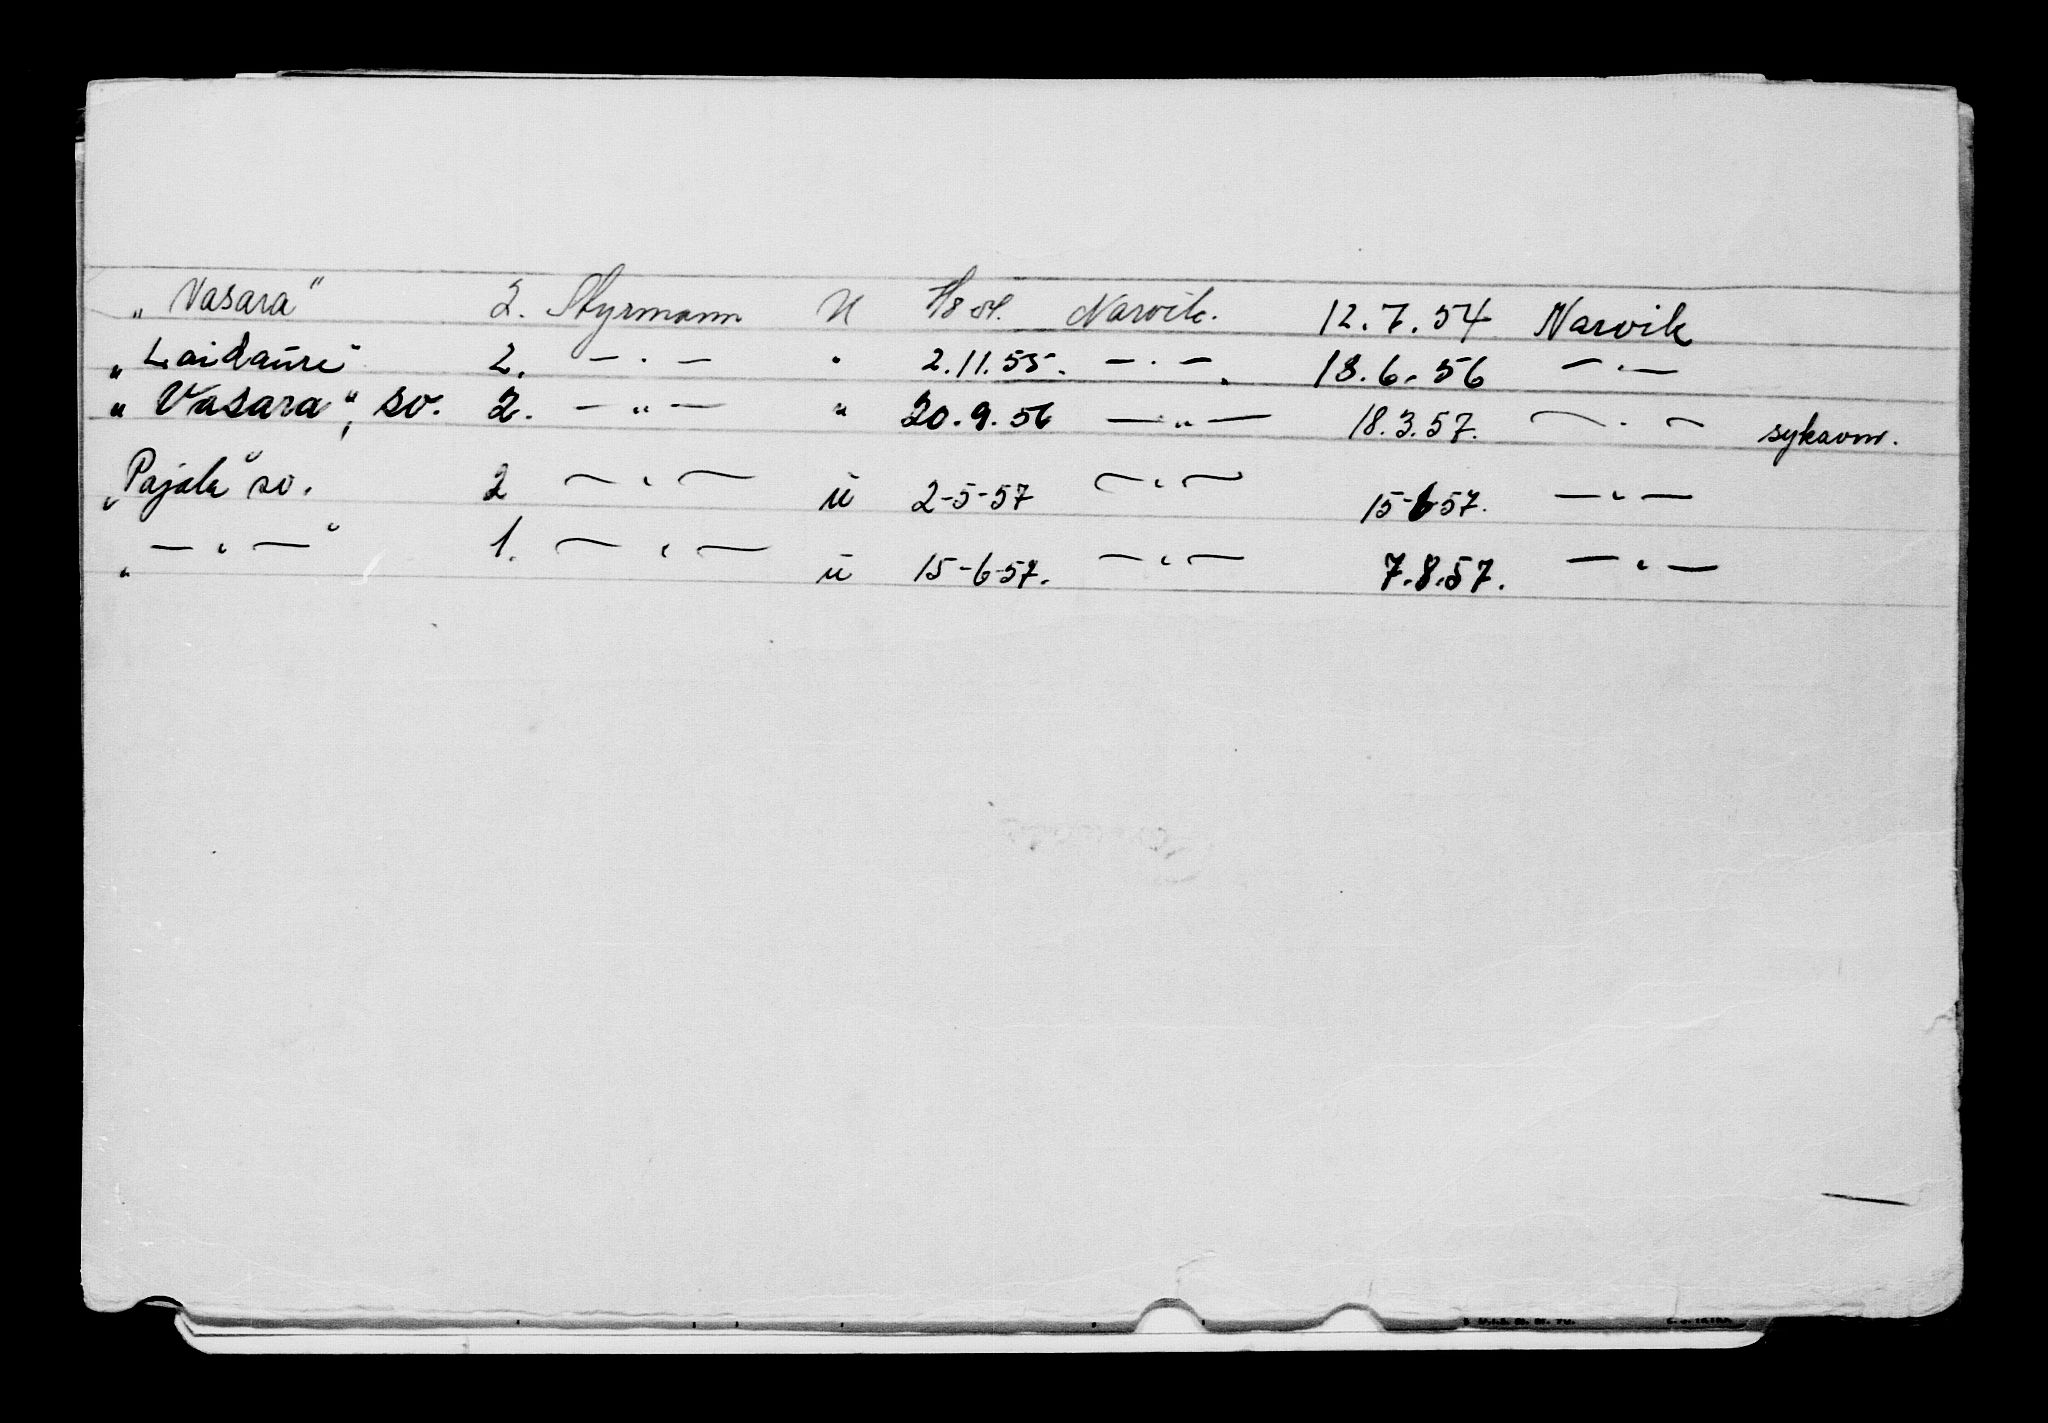 „ Vasara" 2. Styrmann U Narvik. 12.7.54 Narvik
„ Laidaure" 2. — . — " 2.11.55. — . — 18.6.56 — . —
„ Vasara", sv. 2. — „ — " 20.9.56 — „ — 18.3.57. — . — sykavm.
„Pajala" sv. 2 — " — u 2-5-57 — " — 15-6-57. — " —
„ — " — " 1. — " — u 15-6-57. — " — 7.8.57. — " —